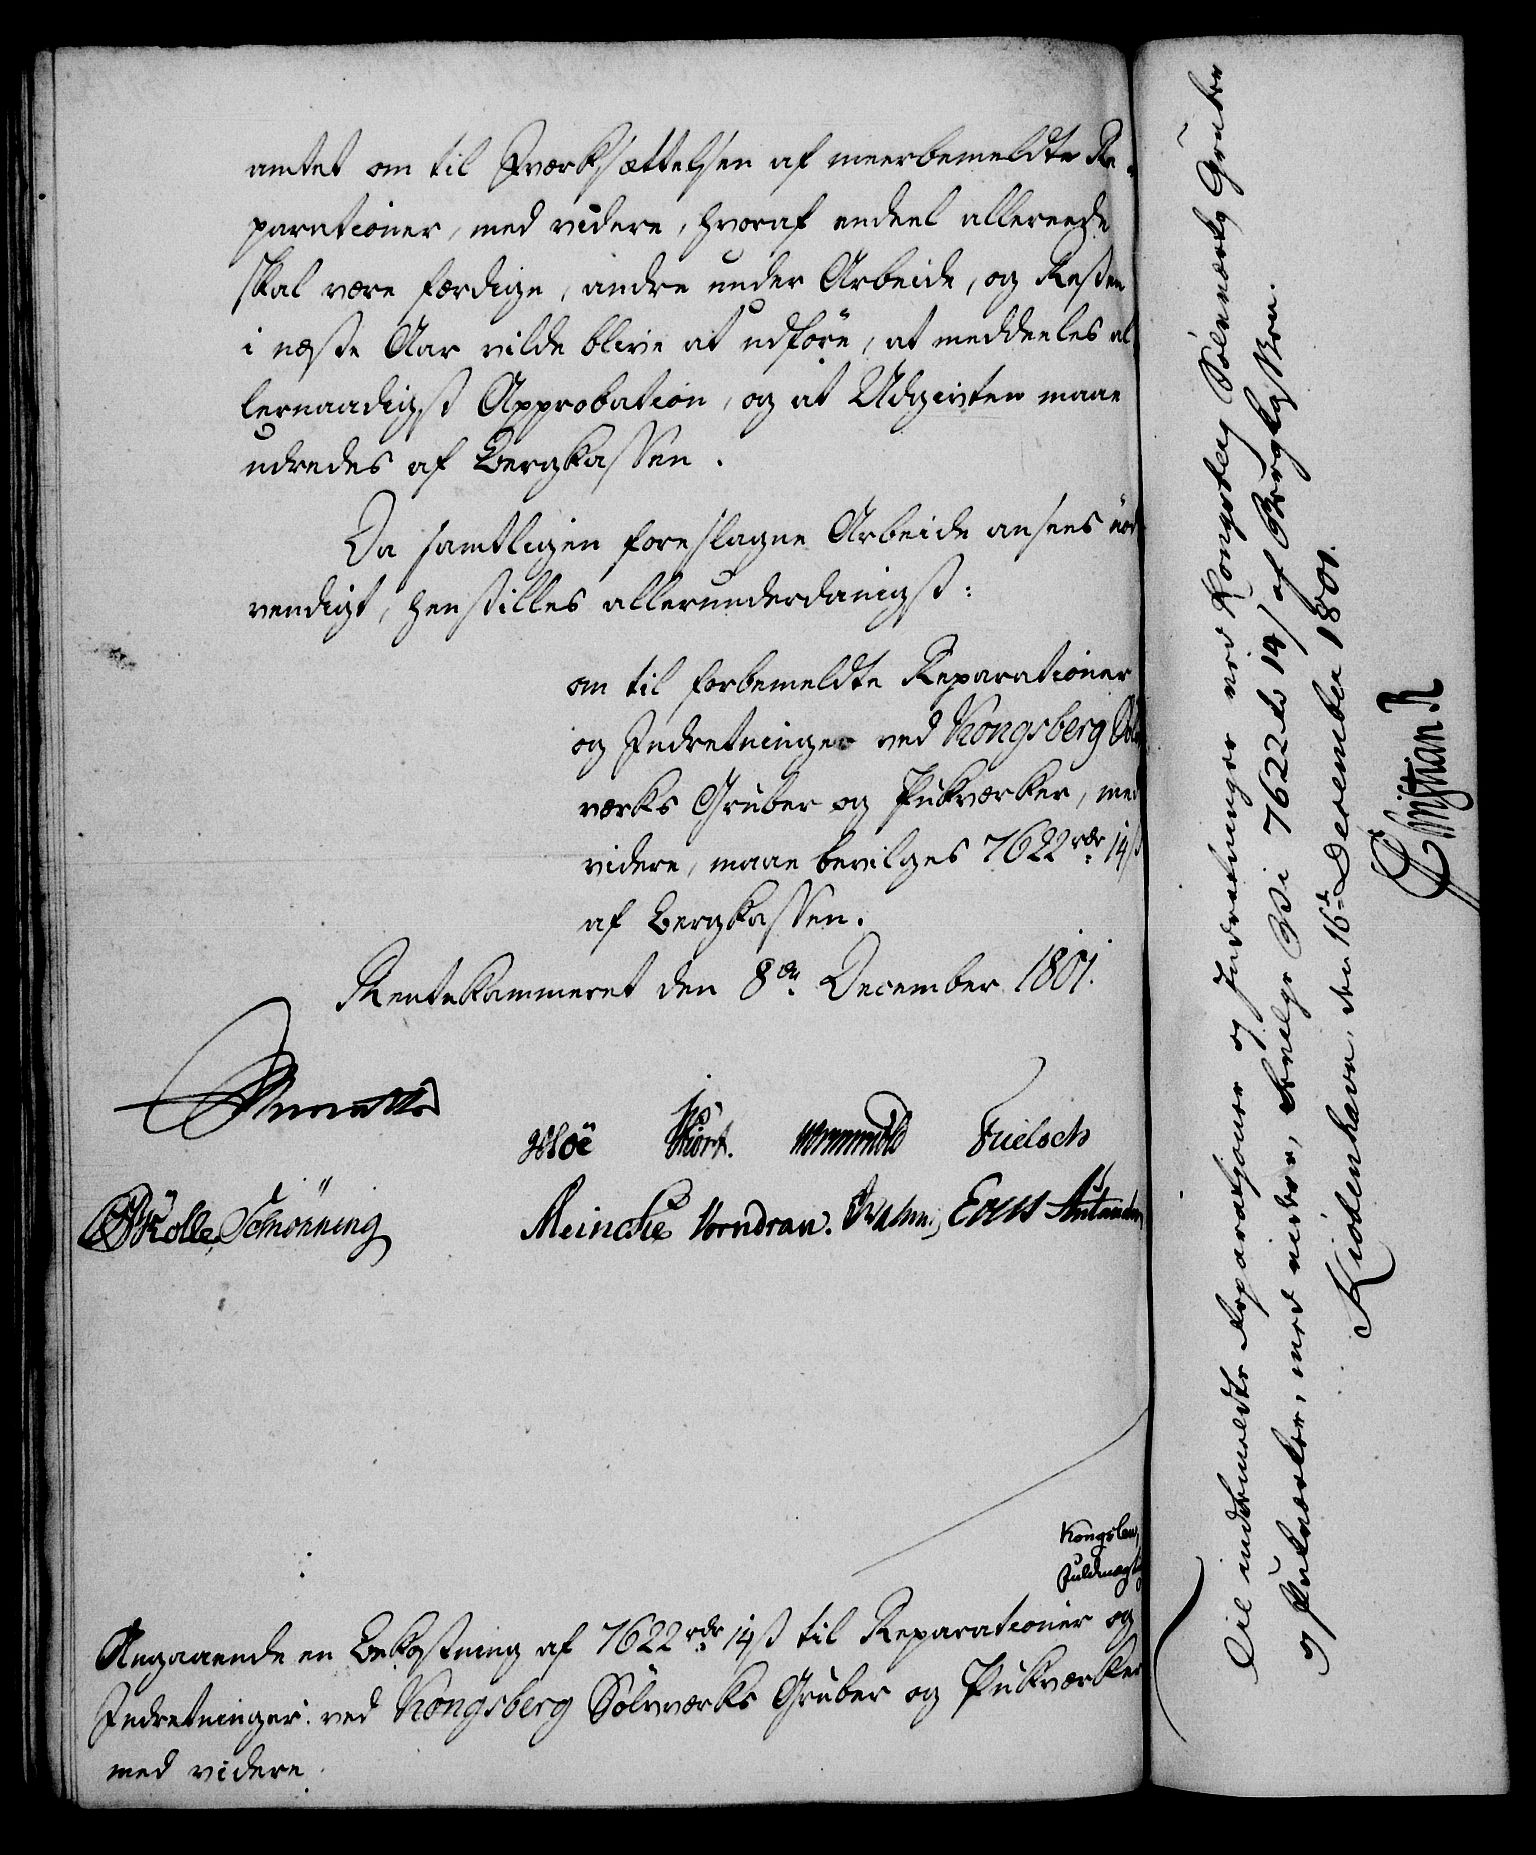 amtet om til Iværksættelsen af meerbemeldte Re-
parationer, med videre, hvoraf endeel allereede
skal være færdige, andre under Arbeide, og Resten
i næste Aar vilde blive at udføre, at meddeeles al
lernaadigst Approbation, og at Udgivten maae
udredes af Bergkassen.
Da samtligen foreslagne Arbeide ansees nöd
vendigt, henstilles allerunderdanigst:
om til forbemeldte Reparationer
og Indretninger ved Kongsberg Söl
værks Gruber og Pukværker, med
videre, maae bevilges 7622 rdr 14 s
af Bergkassen.
Rentekammeret den 8de December 1801.
Hoë Hiort. Wormskiold Frielsch
Kolle Schönning Meincke Vorndran.
Kongsberg
Fuldmægtig
Angaaende en Bekostning af 7622 rdr 14 s til Reparationer og
Indretninger ved Kongsberg Sölvværks Gruber og Pukværker
med videre.
Til indbemeldte Reparationer og Indretninger ved Kongsberg Sölvværks Gruber
og Pukværker, med videre, bevilge Vi 7622 rd 14 s af Bergkassen.
Kiöbenhavn, den 16de December 1801.
Christian R